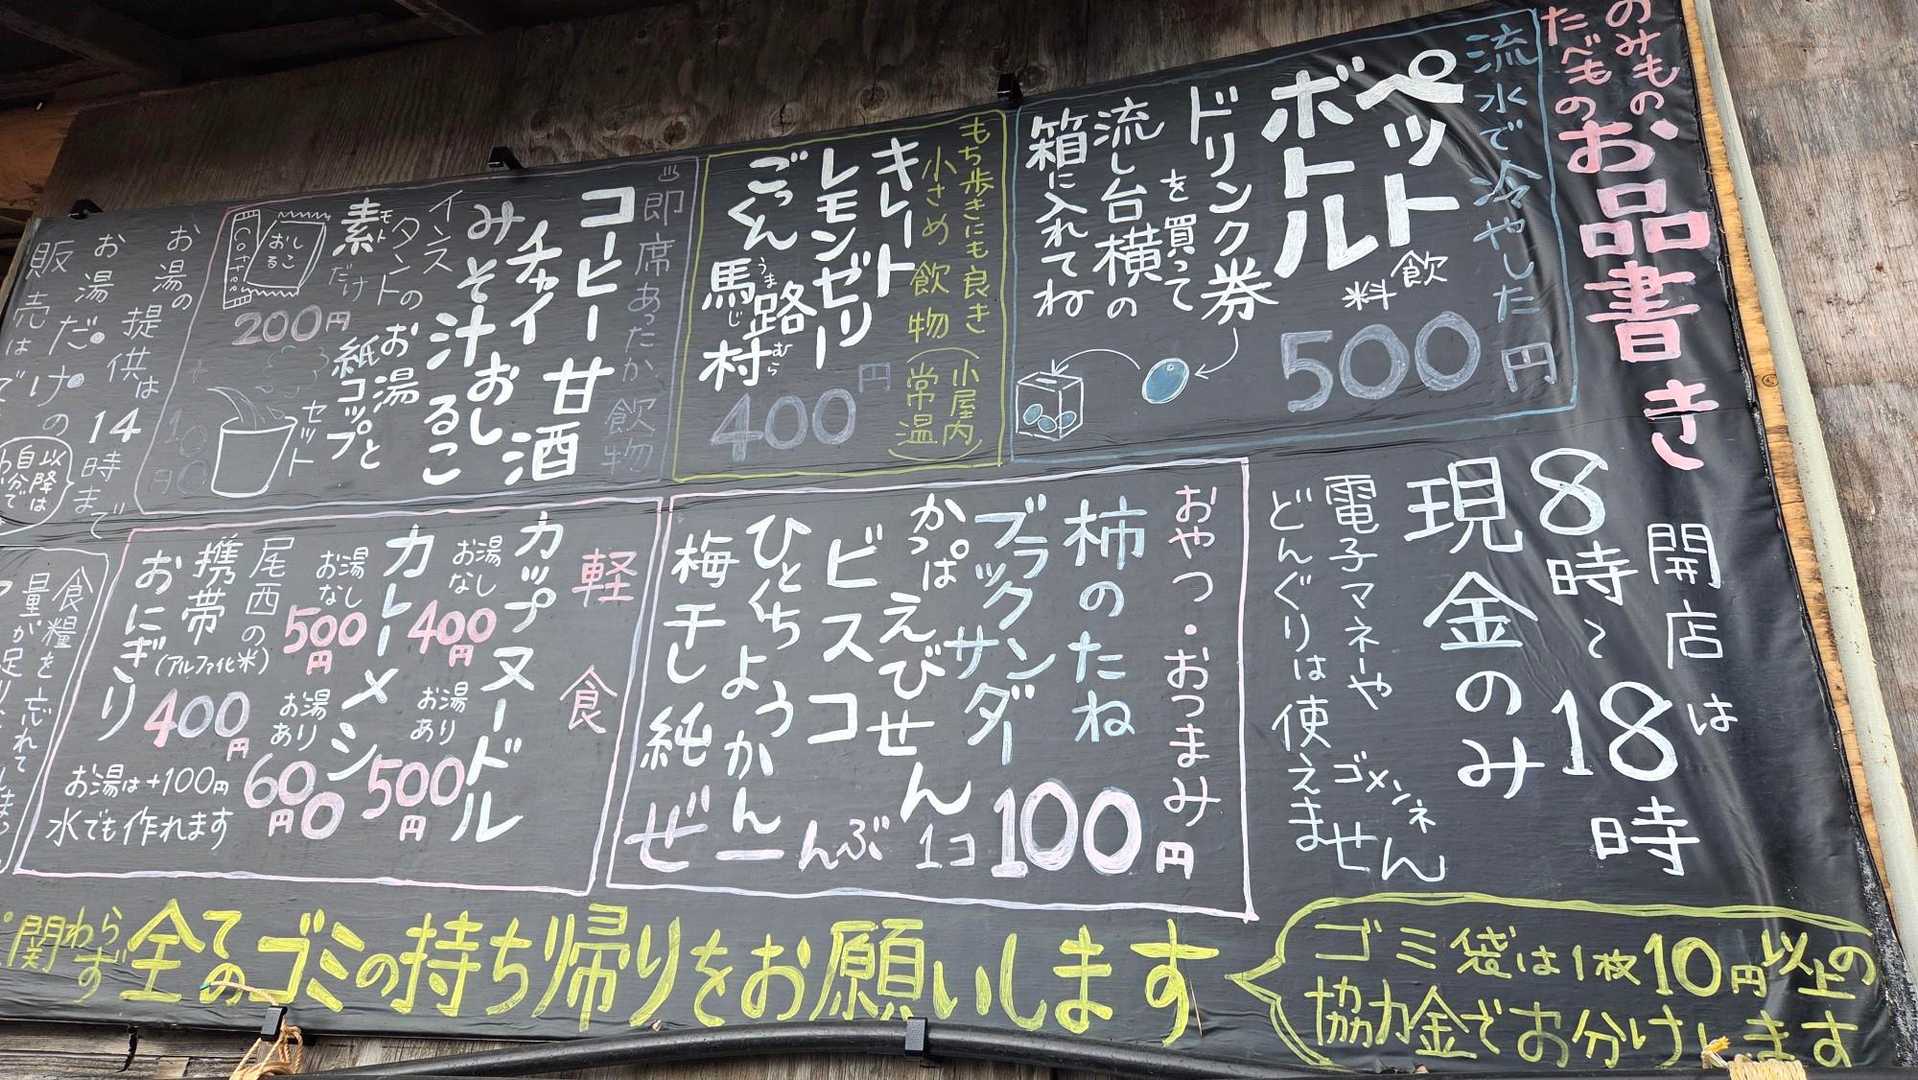 のみもの
たべもの
お品書き
開店は
8時〜18時
現金のみ
電子マネーや
どんぐりは使えません
ゴメンネ
流水で冷やした
ペット
ボトル
飲料
500円
ドリンク券
を買って
流し台横の
箱に入れてね
もち歩きにも良き
小さめ飲物
(小屋内常温)
キレート
レモンゼリー
ごっくん
馬路村
うまじむら
400円
即席あったか飲物
コーヒー 甘酒
チャイ おしるこ
みそ汁
インスタントの
素だけ
モト
200円
おしるこ
お湯
紙コップと
セット
+100円
お湯の
提供は
14時まで
お湯だけの
販売は
以降は
自分で
おやつ・おつまみ
柿のたね
ブラックサンダー
かっぱえびせん
ビスコ
ひとくちようかん
梅干し純
ぜーんぶ
1コ100円
軽食
カップヌードル
お湯なし
400円
お湯あり
500円
カレーメシ
お湯なし
500円
お湯あり
600円
尾西の
携帯
おにぎり
(アルファ化米)
400円
お湯は+100円
水でも作れます
食糧を忘れて
関わらず
全てのゴミの持ち帰りをお願いします
ゴミ袋は1枚10円以上の
協力金でお分けします